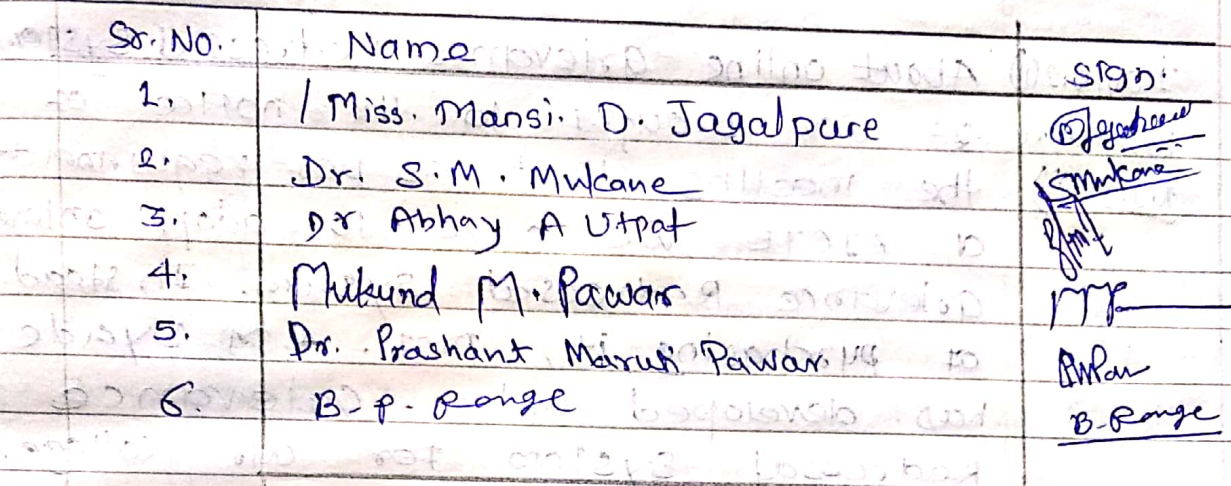 Sr. No. Name Sign.
1. / Miss. Mansi. D. Jagalpure
2. Dr. S.M. Mukane SMukane
3. Dr Abhay A Utpat
4. Mukund M. Pawar
5. Dr. Prashant Maruti Pawar
6. B-P. Ronge B-Ronge